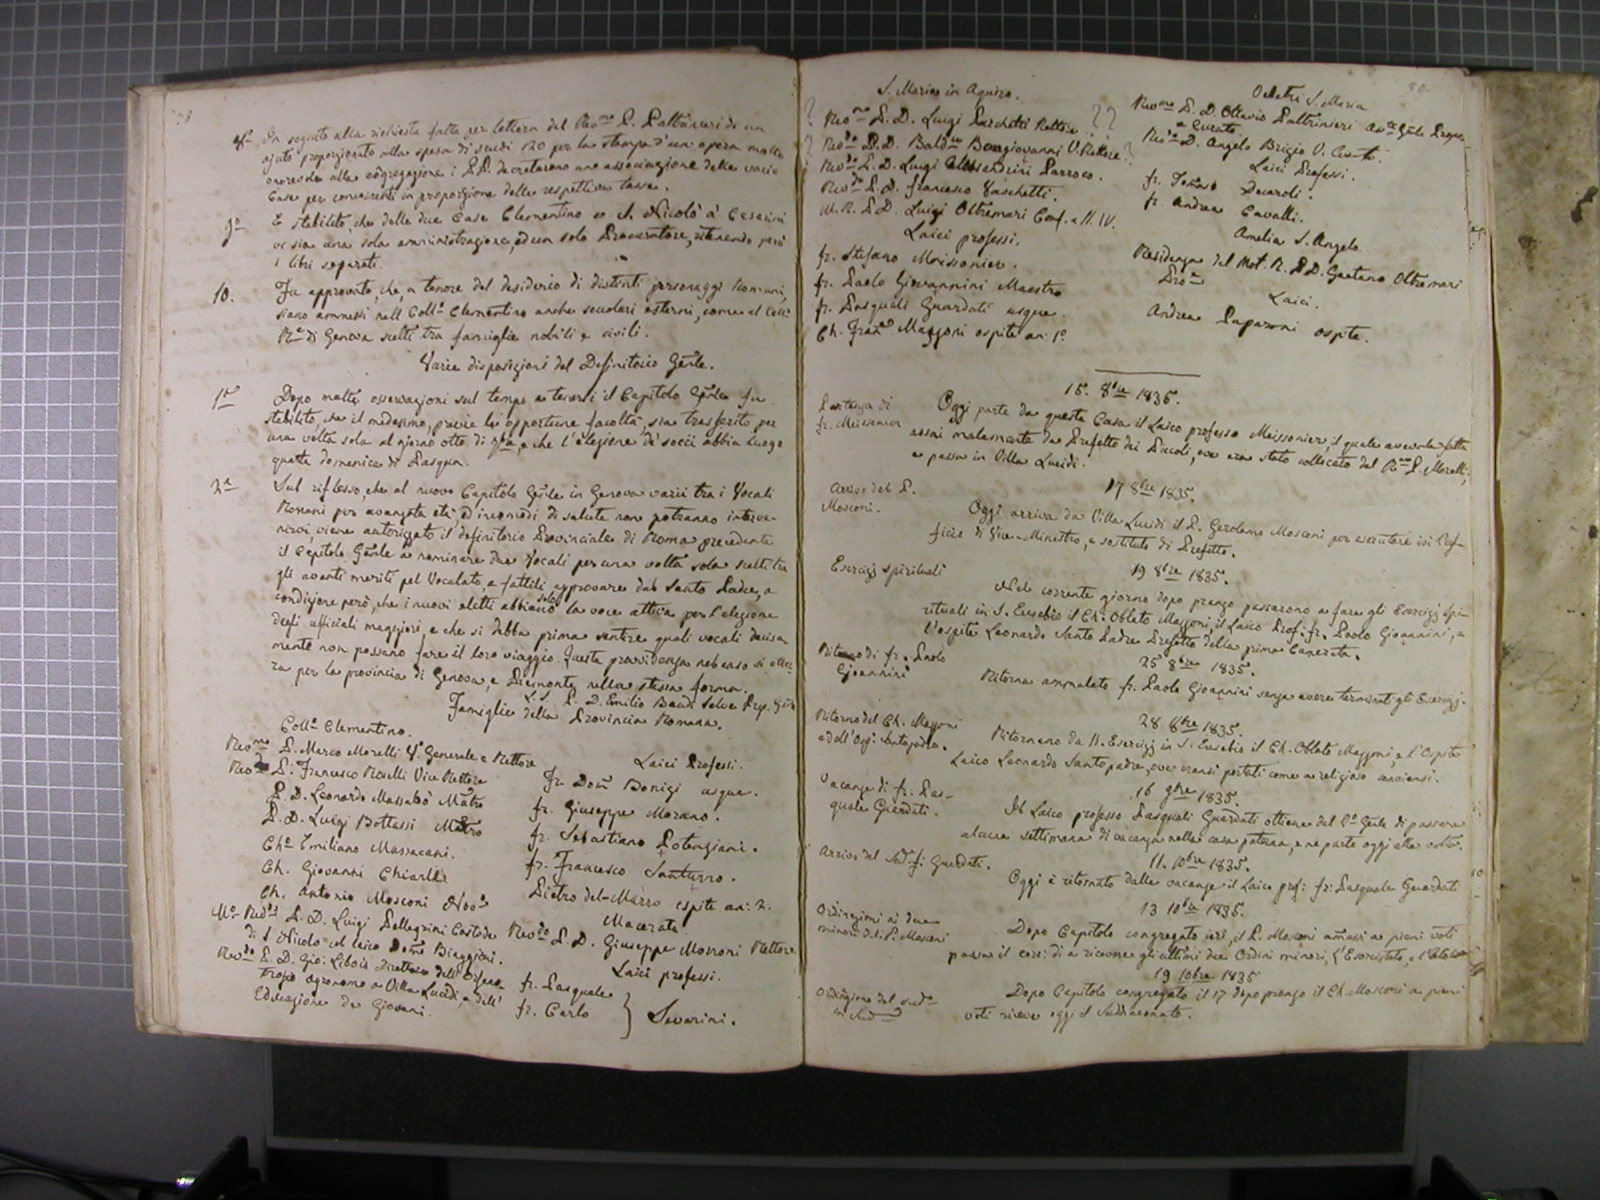 8° In seguito alla richiesta fatta per lettera del Rev.mo P. Paltrinieri di un
ajuto proporzionato alla spesa di scudi 120 per la stampa d'un opera molto
onorevole alla congregazione i PP. decretarono una associazione delle varie
Case per concorrervi in proporzione delle rispettive tasse.
9° È stabilito, che delle due Case Clementino e S. Nicolò a' Cesarini
vi sia una sola amministrazione, ed un solo Procuratore, ritenendo però
i libri separati.
10. Fu approvato, che, a tenore del desiderio di distinti personaggi Romani,
siano ammessi nell Coll.o Clementino anche scuolari esterni, come al Coll.o
R.e di Genova scelti tra famiglie nobili e civili.
Varie disposizioni del Definitorio Gñle.
1a Dopo molte osservazioni sul tempo a tenersi il Capitolo Gñle fu
stabilito, che il medesimo, previe le opportune facoltà, sia trasferito per
una volta sola al giorno otto di 7bre, e che l'elezione de' socii abbia luogo
quarta domenica di Pasqua.
2a Sul riflesso, che al nuovo Capitolo Gñle in Genova varii tra i Vocali
Romani per avanzata età, ed incomodi di salute non potranno interve-
nirvi, viene autorizzato il definitorio Provinciale di Roma precedente
il Capitolo Gñle a nominare due Vocali per una volta sola scelti tra
gli aventi meriti pel Vocalato, e fattili approvare dal Santo Padre, a
condizione però, che i nuovi eletti abbiano solo la voce attiva per l'elezione
degli ufficiali maggiori, e che si debba prima sentire quali vocali decisa
mente non possano fare il loro viaggio. Questa provvidenza nel caso si otter-
rà per la provincia di Genova, e Piemonte nella stessa forma.
L. S. P. D. Emilio Baudi Selve Prep. Gñle
Famiglie della Provincia Romana.
Coll.o Clementino.
Rev.mo P. Marco Morelli V.o Generale e Rettore
Rev.do P. Francesco Roselli Vice Rettore
P. D. Leonardo Massabò Mãtro
P. D. Luigi Bottassi Mãtro
Ch.o Emiliano Massacani.
Ch. Giovanni Chiarlle
Ch. Antonio Mosconi
M.o Red.o P. D. Luigi Pellegrini Custode
di S. Nicolo col laico Dom.o Biaggioni.
Rev.do P. D. Gio: Libois Direttore dell'Orfano-
trofio agronomo a Villa Lucidi, e dell'
Educazione de Giovani.
Laici Professi.
Fr. Dom.o Bonigi usque.
fr. Giuseppe Morano.
fr. Sebastiano Potenziani.
fr. Francesco Santurro.
Pietro del-Marro ospite an: 2.
Macerata
Rev.do P. D. Giuseppe Morroni Rettore
Laici professi.
fr. Pasquale
fr. Carlo } Severini.
S. Maria in Aquiro.
Rev.mo P. D. Luigi Parchetti Rettore
Rev.do P. D. Bald.re Bongiovanni V. Rettore
Rev.do P. D. Luigi Alessandrini Parroco.
Rev.do P. D. Francesco Vaschetti.
M. R. P. D. Luigi Oltremari Conf. a II. IV.
Laici professi.
fr. Stefano Moissonier.
fr. Paolo Giovannini Maestro
fr. Pasquali Guardati usque.
Ch. Fran.o Mazzoni ospite an: 1°
Velletri S. Maria
Rev.mo P. D. Ottavio Paltrinieri
e Curato
Rev.do D. Angelo Brigio V. Curato.
Laici Professi.
fr. Tomaso Decaroli.
fr. Andrea Cavalli.
Amelia S. Angelo
Residenza del Mol. R. P. D. Gaetano Oltremari
Laici.
Andrea Paparoni ospite.
15. 8bre 1835.
Partenza di
fr. Meissonier
Oggi parte da questa Casa il Laico professo Meissonier, il quale avea la fatta
assai malamente da Prefetto dei Piccoli, ove era stato collocato dal R.mo P. Morelli,
e passa in Villa Lucidi.
17 8bre 1835.
Arrivo del P.
Mosconi.
Oggi arriva da Villa Lucidi il P. Gerolamo Mosconi per esercitare ivi l'of-
ficio di Vice-Ministro, e sostituto di Prefetto.
19 8bre 1835.
Esercizj spirituali
Nel corrente giorno dopo pranzo passarono a fare gli Esercizj Spi-
rituali in S. Eusebio il Ch. Oblato Mazzoni, il Laico Prof. fr. Paolo Gioannini, e
l'ospite Leonardo Santo Padre Prefetto della prima Camerata.
25 8bre 1835.
Ritorno di fr. Paolo
Gioannini
Ritorna ammalato fr. Paolo Gioannini senza avere terminati gli Esercizj.
28 8bre 1835.
Ritorno del Ch. Mazzoni
e dell'Osp. Santopadre.
Ritornano da II. Esercizj in S. Eusebio il Ch. Oblato Mazzoni, e l'Ospite
Laico Leonardo Santopadre, ove eransi portati come a religioso conviensi.
16 9bre 1835.
Vacanze di fr. Pas-
quale Guardati.
Il Laico professo Pasquali Guardati ottiene dal V.o Gñle di passare
alcune settimane di vacanza nella casa paterna, e ne parte oggi alla volta.
11. 10bre 1835.
Arrivo del sud.o fr. Guardati.
Oggi è ritornato dalle vacanze il Laico prof: fr: Pasquale Guardati
13 10bre 1835.
Ordinazioni ai due
minori del P. Mosconi
Dopo Capitolo congregato ieri, il P. Mosconi a pieni voti
passa il così: di a ricevere gli ultimi due Ordini minori, l'Esorcistato, e l'
19 10bre 1835
Ordinazione del sud.o
in Sud
Dopo Capitolo congregato il 17 dopo pranzo il Ch. Mosconi a pieni
voti riceve oggi il Suddiaconato.